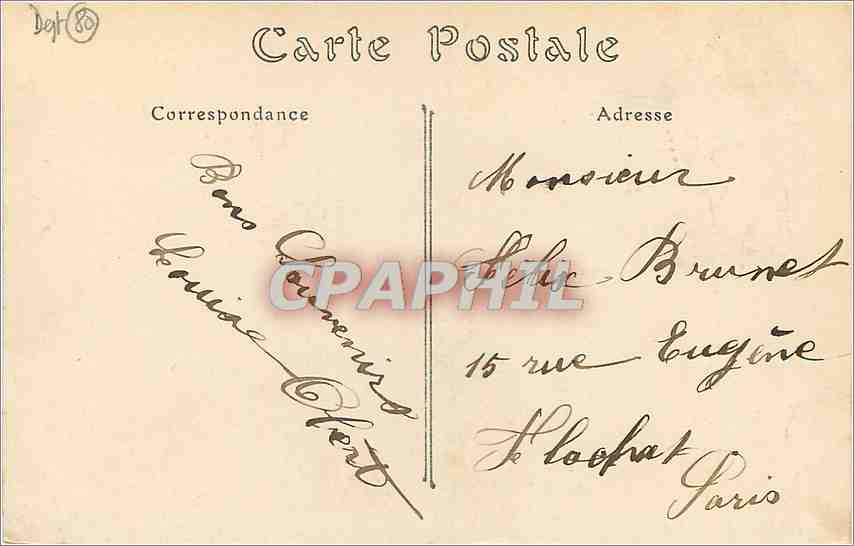 Dept 80
Carte Postale
Correspondance
Bons Souvenirs
Louise Obert
Adresse
Monsieur
Félix Brunet
15 rue Eugène
Flachat
Paris
CPAPHIL